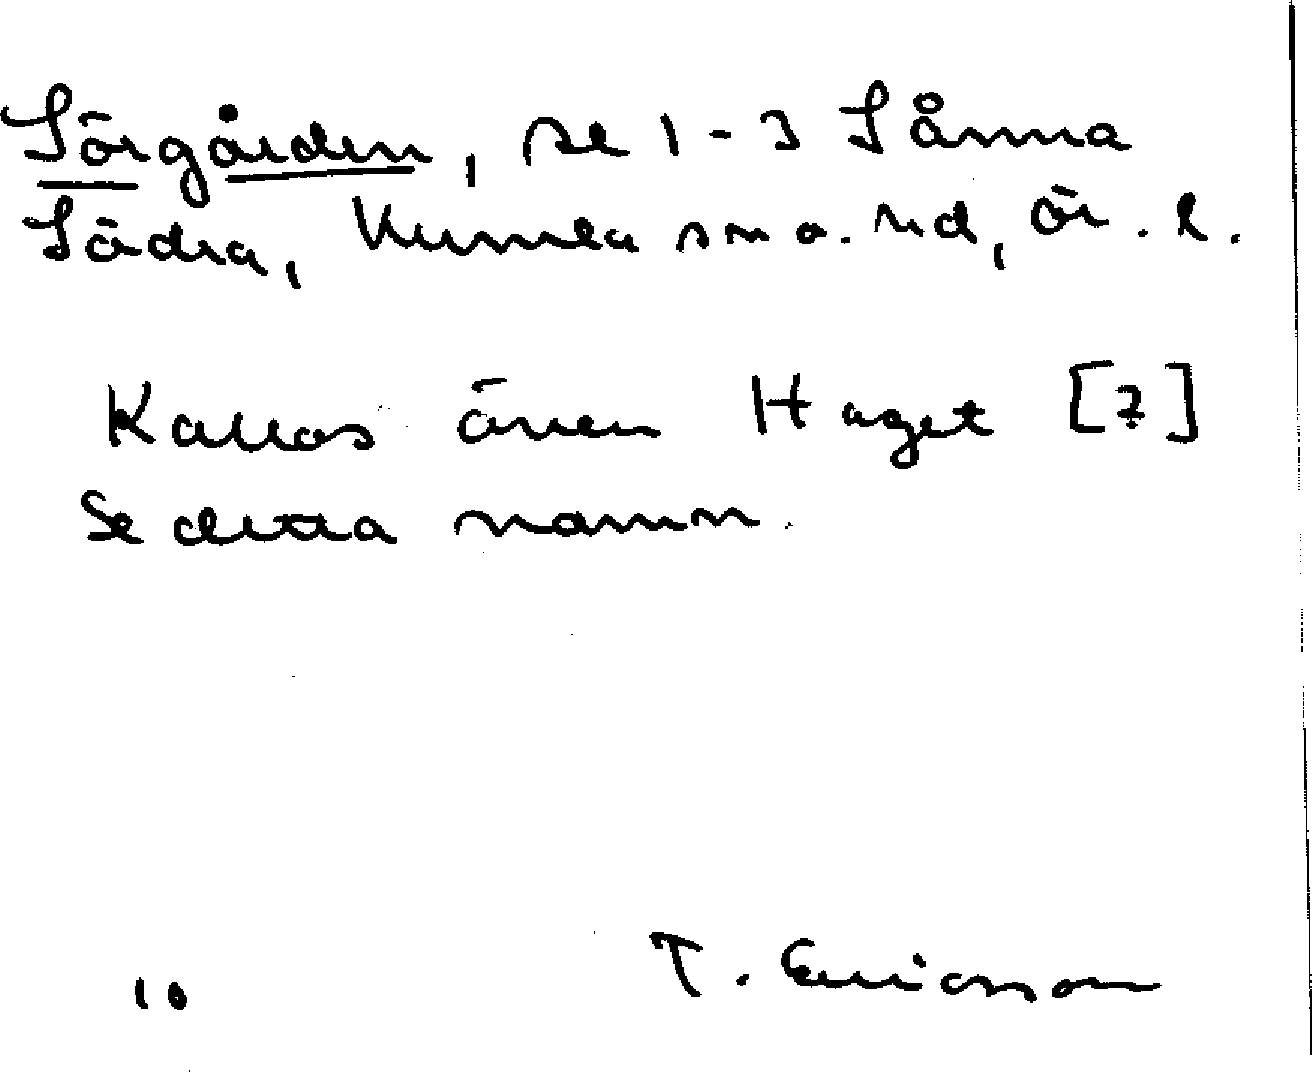 Sörgården, se 1-3 Sånna
Södra, Kumla sn o. hd, Ör. l.
Kallas även Haget [?]
Se detta namn.
10 T. Ericsson